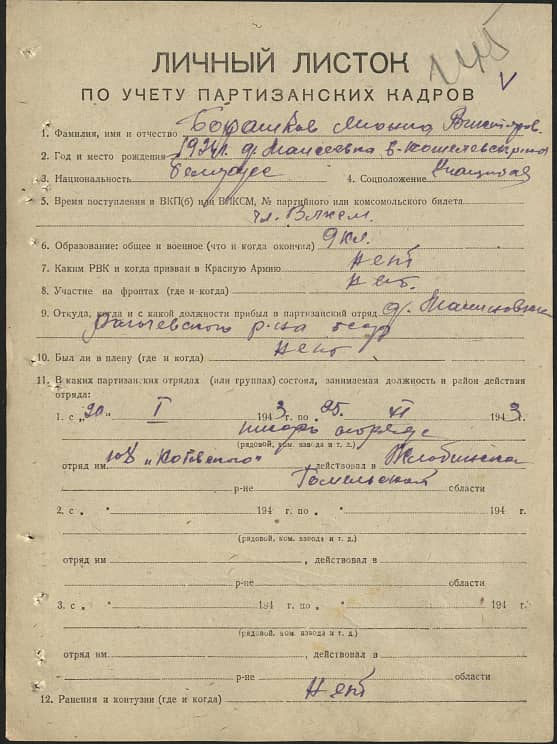 145
V
ЛИЧНЫЙ ЛИСТОК
ПО УЧЕТУ ПАРТИЗАНСКИХ КАДРОВ
1. Фамилия, имя и отчество
2. Год и место рождения д.
3. Национальность белорус 4. Соцположение учащийся
5. Время поступления в ВКП(б) или ВЛКСМ, № партийного или комсомольского билета
чл. ВЛКСМ
6. Образование: общее и военное (что и когда окончил) 9 кл.
7. Каким РВК и когда призван в Красную Армию нет
8. Участие на фронтах (где и когда) нет
9. Откуда, когда и с какой должности прибыл в партизанский отряд д.
р-на БССР
10. Был ли в плену (где и когда) нет
11. В каких партизанских отрядах (или группах) состоял, занимаемая должность и район действия
отряда:
1. с „20" I 1943 г. по „25 XI 1943 г.
писарь отряда
(рядовой, ком. взвода и т. д.)
отряд им. 108 „Котовского" действовал в Жлобинском
р-не Гомельской области
2. с „ " 194 г. по „ " 194 г.
(рядовой, ком. взвода и т. д.)
отряд им , действовал в
р-не области
3. с „ " 194 г. по „ " 194 г.
(рядовой, ком. взвода и т. д.)
отряд им , действовал в
р-не области
12. Ранения и контузии (где и когда) Нет